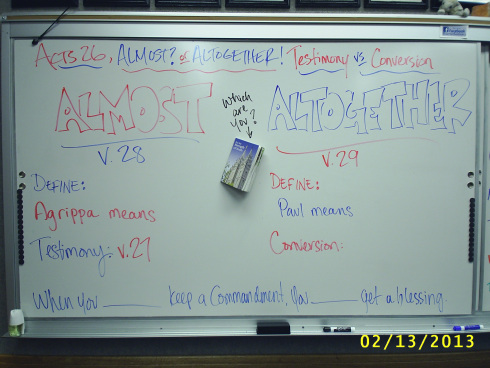 ACTS 26, ALMOST? or ALTOGETHER! Testimony vs Conversion
ALMOST
v. 28
DEFINE:
Agrippa means
Testimony: v.27
Which
are
you?
ALTOGETHER
v. 29
DEFINE:
Paul means
Conversion:
When you ______ keep a Commandment, you ______ get a blessing.
02/13/2013